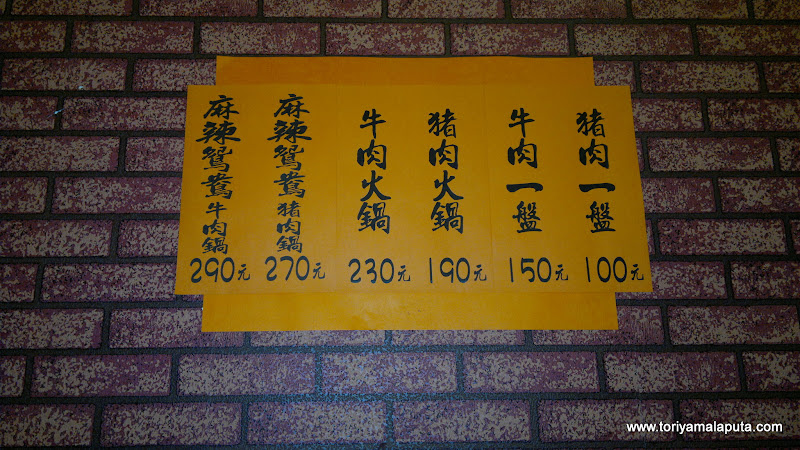 猪肉一盤
100元
牛肉一盤
150元
猪肉火鍋
190元
牛肉火鍋
230元
麻辣鴛鴦猪肉鍋
270元
麻辣鴛鴦牛肉鍋
290元
www.toriyamalaputa.com